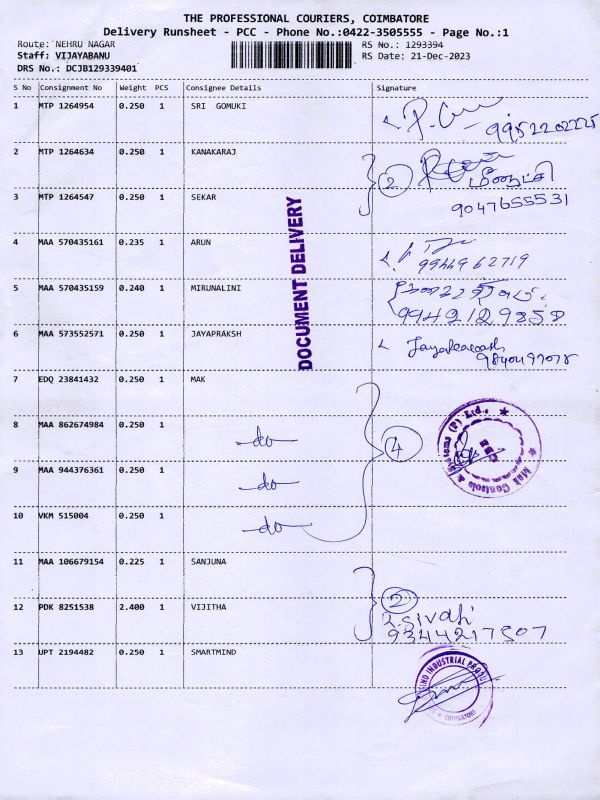 THE PROFESSIONAL COURIERS, COIMBATORE
Delivery Runsheet - PCC - Phone No.:0422-3505555 - Page No.:1
Route: NEHRU NAGAR
RS No.: 1293394
Staff: VIJAYABANU
RS Date: 21-Dec-2023
DRS No.: DCJB129339401
S No Consignment No Weight PCS Consignee Details Signature
1 MTP 1264954 0.250 1 SRI GOMUKI
9952202225
2 MTP 1264634 0.250 1 KANAKARAJ 2
மீனாட்சி
3 MTP 1264547 0.250 1 SEKAR 9047655531
4 MAA 570435161 0.235 1 ARUN
9944962719
5 MAA 570435159 0.240 1 MIRUNALINI
6 MAA 573552571 0.250 1 JAYAPRAKSH Jayaprakash
DOCUMENT DELIVERY
7 EDQ 23841432 0.250 1 MAK
8 MAA 862674984 0.250 1 -do- 4
Mak Controls & Systems (P) Ltd.,
9 MAA 944376361 0.250 1 -do-
10 VKM 515004 0.250 1 -do-
11 MAA 106679154 0.225 1 SANJUNA
2
12 PDK 8251538 2.400 1 VIJITHA
9344217507
13 UPT 2194482 0.250 1 SMARTMIND
COIMBATORE